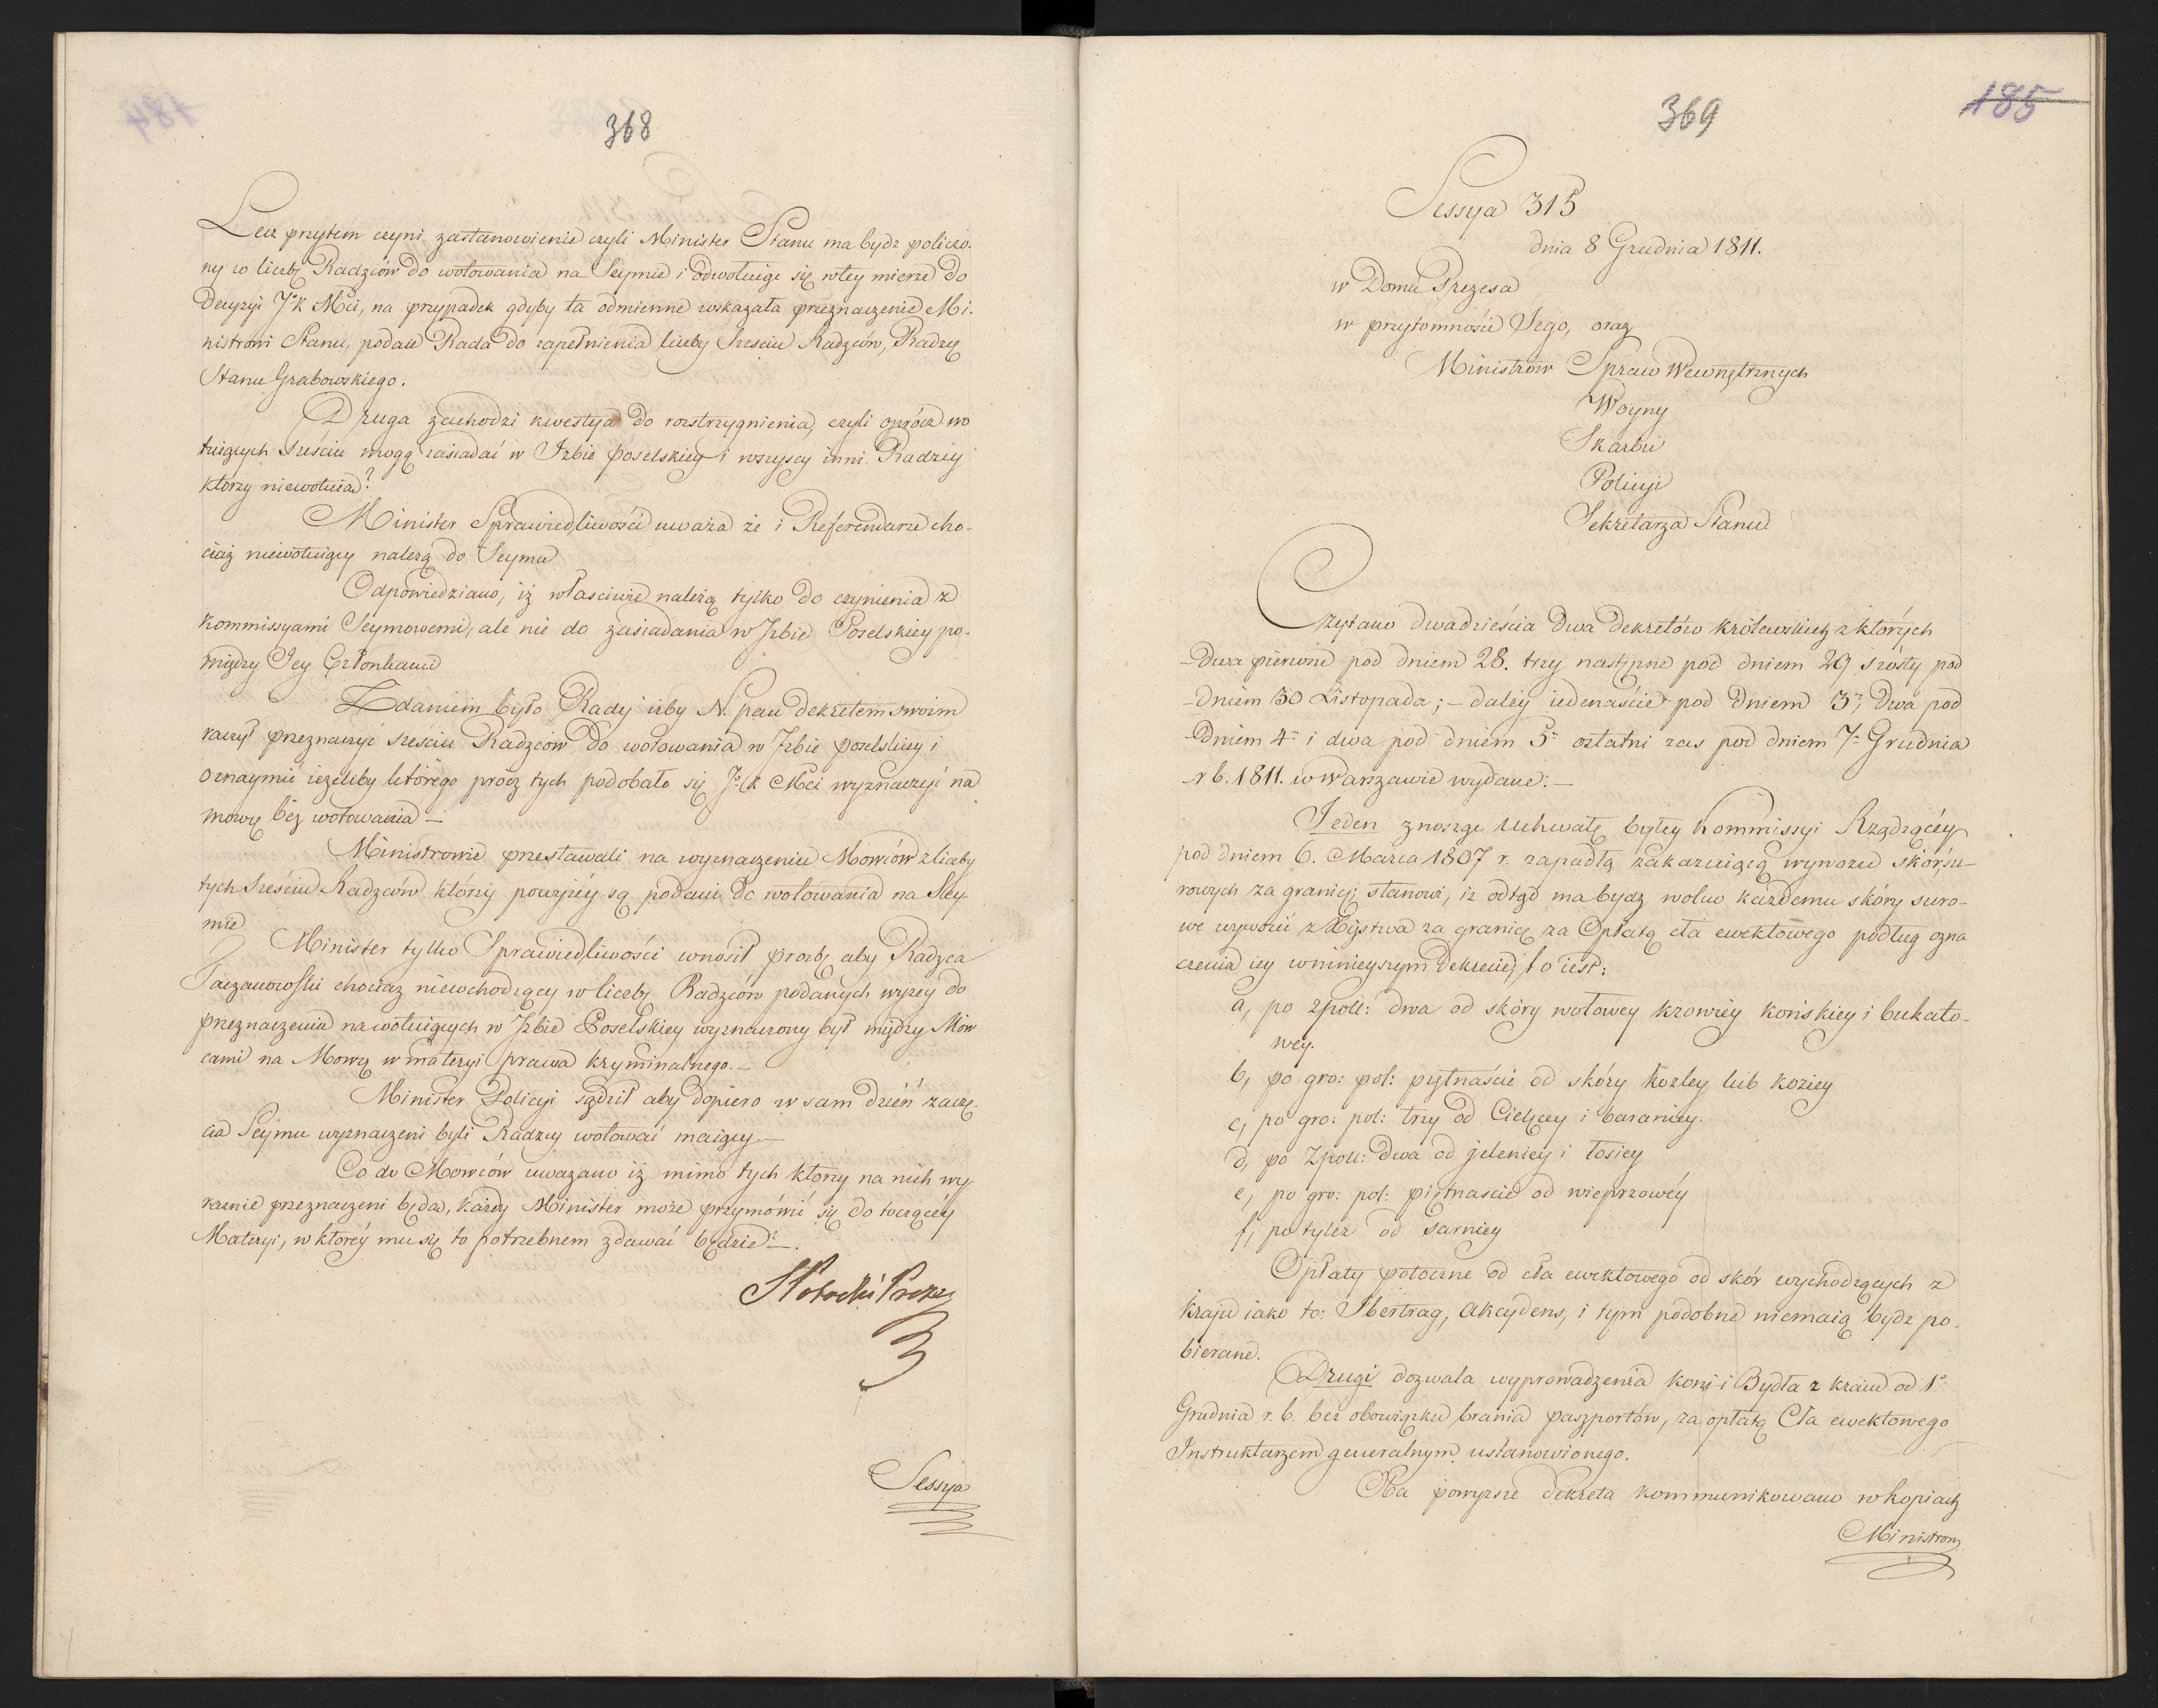 368
Lecz przytem czyni zastanowienie czyli Minister Stanu ma bydz policzo-
ny w liczbę Radzców do wotowania na Seymie i odwołuiąc się w tey mierze do
Decyzyi J. K. Mci, na przypadek gdyby ta odmienne wskazała przeznaczenie Mi-
nistrowi Stanu, podaie Rada do zapełnienia liczby sześciu Radzców, Radzcę
Stanu Grabowskiego.
Druga zachodzi kwestya do rozstrzygnienia, czyli oprócz wo
tuiących sześciu mogą zasiadać w Izbie poselskiey i wszyscy inni Radzcy
którzy niewotuią?
Minister Sprawiedliwości uważa że i Referendarze cho-
ciaż niewotuiący należą do Seymu
Odpowiedziano, iż właściwie należą tylko do czynienia z
Kommissyami Seymowemi, ale nie do zasiadania w Izbie Poselskiey po-
między Jey Członkami
Zdaniem było Rady iżby N. Pan dekretem swoim
raczył przeznaczyć sześciu Radzców do wotowania w Izbie poselskiey i
oznaymić ieżeliby którego prócz tych podobało się J. K. Mci wyznaczyć na
mowcę bez wotowania —
Ministrowie przestawali na wyznaczeniu Mowców z liczby
tych sześciu Radzców którzy powyżey są podani do wotowania na Sey
mie
Minister tylko Sprawiedliwości wnosił prozbę aby Radzca
Taczanowski chociaz niewchodzący w liczbę Radzców podanych wyzey do
przeznaczenia na wotuiących w Izbie Poselskiey wyznaczony był między Mow
cami na Mowcę w materyi prawa kryminalnego. —
Minister Policyi sądził aby dopiero w sam dzień zaczę-
cia Seymu wyznaczeni byli Radzcy wotować maiący —
Co do Mowców uwazano iż mimo tych którzy na nich wy
raznie przeznaczeni będą, każdy Minister może przymówić się do toczącéy
Materyi, w któréy mu się to potrzebnem zdawać będzie. —
St Potocki Prezes
Sessya
369
185
Sessya 315
dnia 8 Grudnia 1811.
w Domu Prezesa
w przytomności Jego, oraz
Ministrów Spraw Wewnętrznych
Woyny
Skarbu
Policyi
Sekretarza Stanu
Czytano dwadzieścia dwa dekretów królewskich z których
dwa pierwsze pod dniem 28. trzy następne pod dniem 29 szósty pod
dniem 30 Listopada; — daléy iedenaście pod dniem 3, dwa pod
dniem 4 i dwa pod dniem 5 ostatni zas pod dniem 7 Grudnia
r b. 1811. w Warszawie wydane: —
Jeden znosząc Uchwałę byłey Kommissyi Rządzącéy
pod dniem 6. Marca 1807 r. zapadłą zakazuiącą wywozu skór su-
rowych za granicę; stanowi, iż odtąd ma bydz wolno każdemu skóry suro-
we wywozić z Xięstwa za granicę za Opłatą cła ewektowego podług ozna
czenia iey w ninieyszym Dekrecie, to iest:
a, po zpoll: dwa od skóry wołowey krowiéy końskiey i bukato-
wey.
b, po gro: pol: piętnaście od skóry kozley lub koziey
c, po gro: pol: trzy od Cielęcey i baraniey.
d, po Zpoll: dwa od jeleniey i łosiey
e, po gro: pol: piętnaście od wieprzowéy
f, po tyleż od sarniey
Opłaty potoczne od cła ewektowego od skór wychodzących z
kraju iako to: Ibertrag, Akcydens, i tym podobne niemaią bydz po-
bierane.
Drugi dozwala wyprowadzenia koni i Bydła z kraiu od 1
Grudnia r. b. bez obowiązku brania paszportów, za opłatą Cła ewektowego
Instruktarzem generalnym ustanowionego.
Oba powyższe dekreta kommunikowano w kopiach
Ministrom